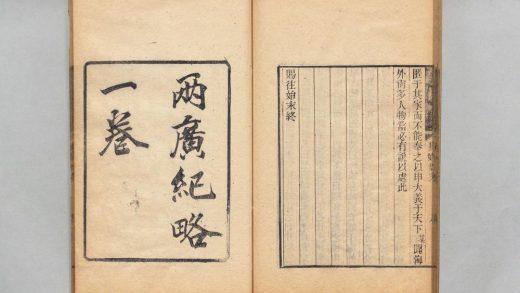 匿于其家而不能奉之以申大義于天下某聞海
外尚多人物當必有說以處此
賜姓始末終
兩廣紀略
一卷